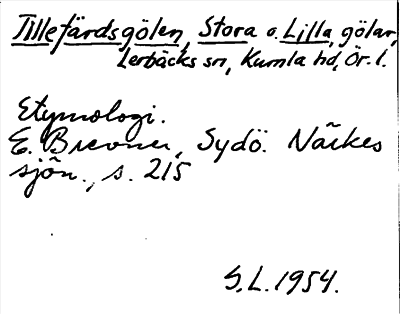 Tillefärdsgölen, Stora o. Lilla, gölar,
Lerbäcks sn, Kumla hd, Ör. l.
Etymologi.
E. Brevner, Sydö. Närkes
sjön., s. 215
S.L. 1954.